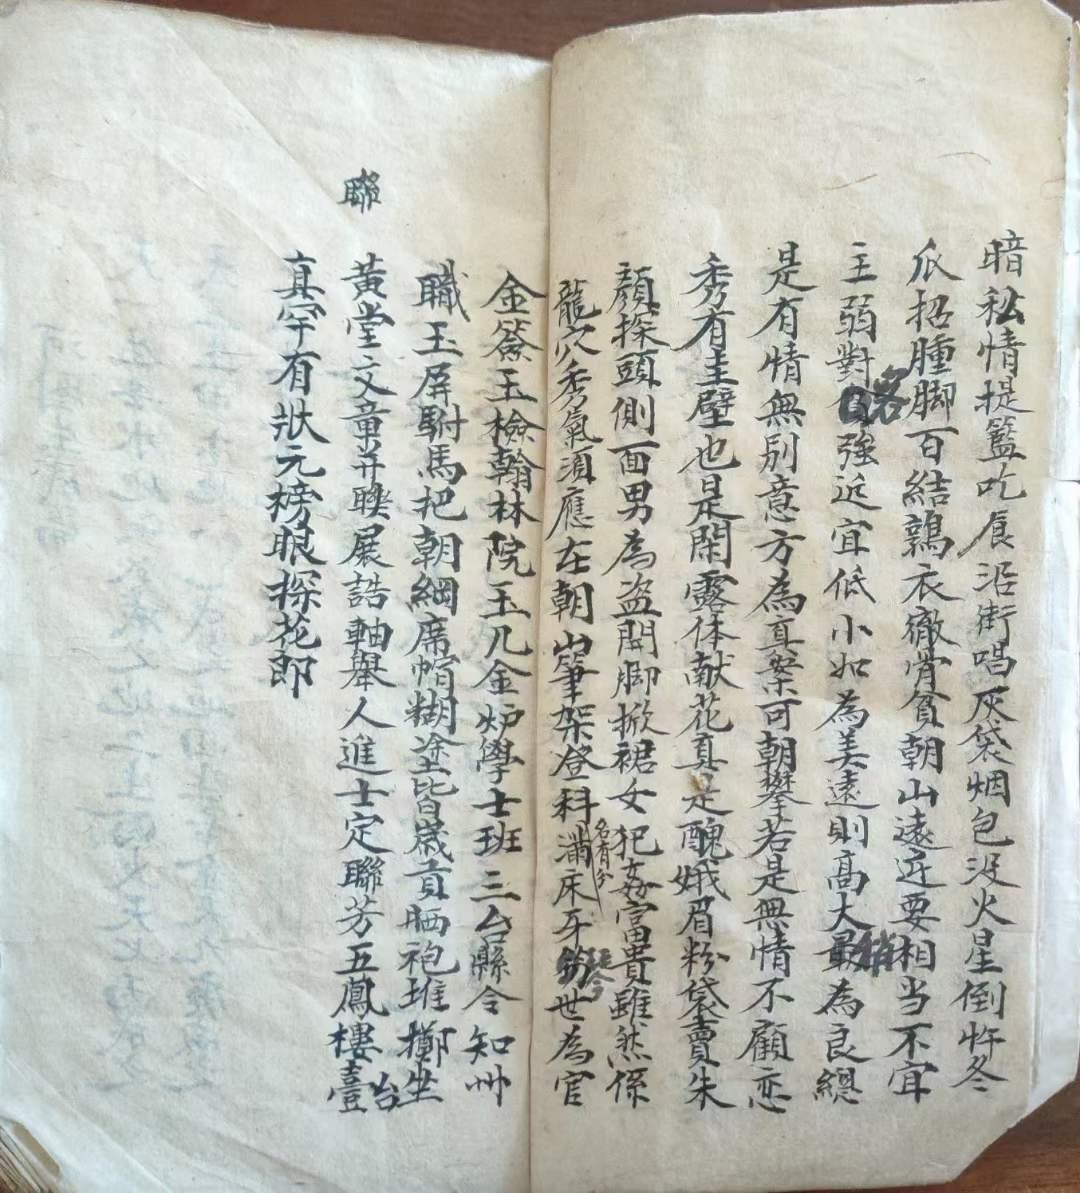 暗私情提籃吃飡沿街唱灰袋烟包没火星倒忤冬
瓜招腫脚百結鶉衣徹骨貧朝山遠近要相当不宜
主弱對客強近宜低小如為美遠則高大最為良總
是有情無別意方為真案可朝攀若是無情不顧恋
秀有圭壁也是閑露体献花真是醜娥眉粉袋賣朱
顏探頭側面男為盗開脚掀裙女犯姦富貴雖然係
龍穴秀氣須應在朝山筆架登科滿床牙笏世為官
名有分
金簽玉檢翰林院玉几金炉學士班三台縣令知州
職玉屏駙馬把朝綱席帽糊塗皆歳貢晒袍堆擲坐
黃堂文章并聯展誥軸舉人進士定聯芳五鳳樓臺
聯
台
真罕有狀元榜眼探花郎